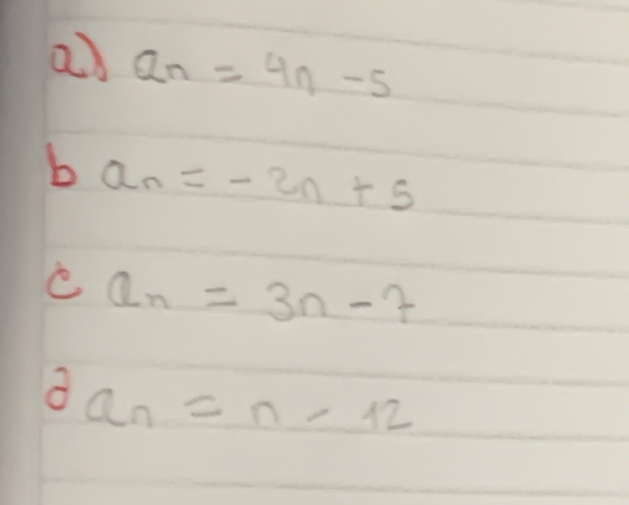 a) an = 4n - 5
b an = - 2n + 5
c an = 3n - 7
d an = n - 12